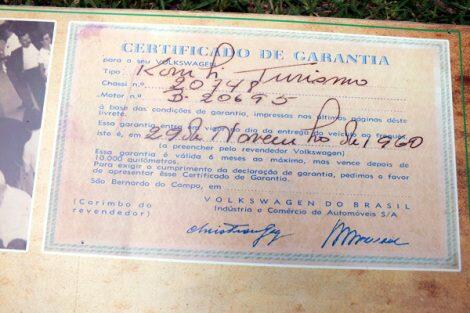 CERTIFICADO DE GARANTIA
para o seu VOLKSWAGEN
Tipo Kombi Turismo
Chassi n.º 20748
Motor n.º B-20695
à base das condições de garantia, impressas nas últimas páginas dêste
livrete.
Essa garantia entra em vigor no dia da entrega do veículo ao freguês
isto é, em 29 de Novembro de 1960
(a preencher pelo revendedor Volkswagen)
Essa garantia é válida 6 meses ao máximo, mas vence depois de
10.000 quilômetros.
Para exigir o cumprimento da declaração de garantia, pedimos o favor
de apresentar êsse Certificado de Garantia.
São Bernardo do Campo, em
(Carimbo do
revendedor)
VOLKSWAGEN DO BRASIL
Indústria e Comércio de Automóveis S/A